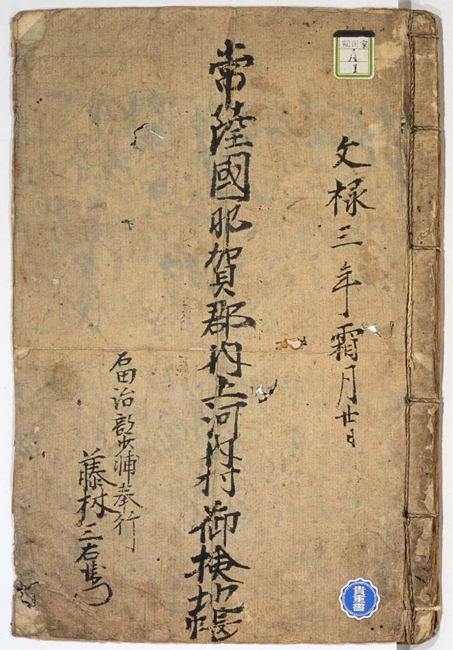 文禄三年霜月廿日
常陸國那賀郡内上河内村御検地帳
石田治部少輔奉行
藤林三右衛門
A
1
貴重書